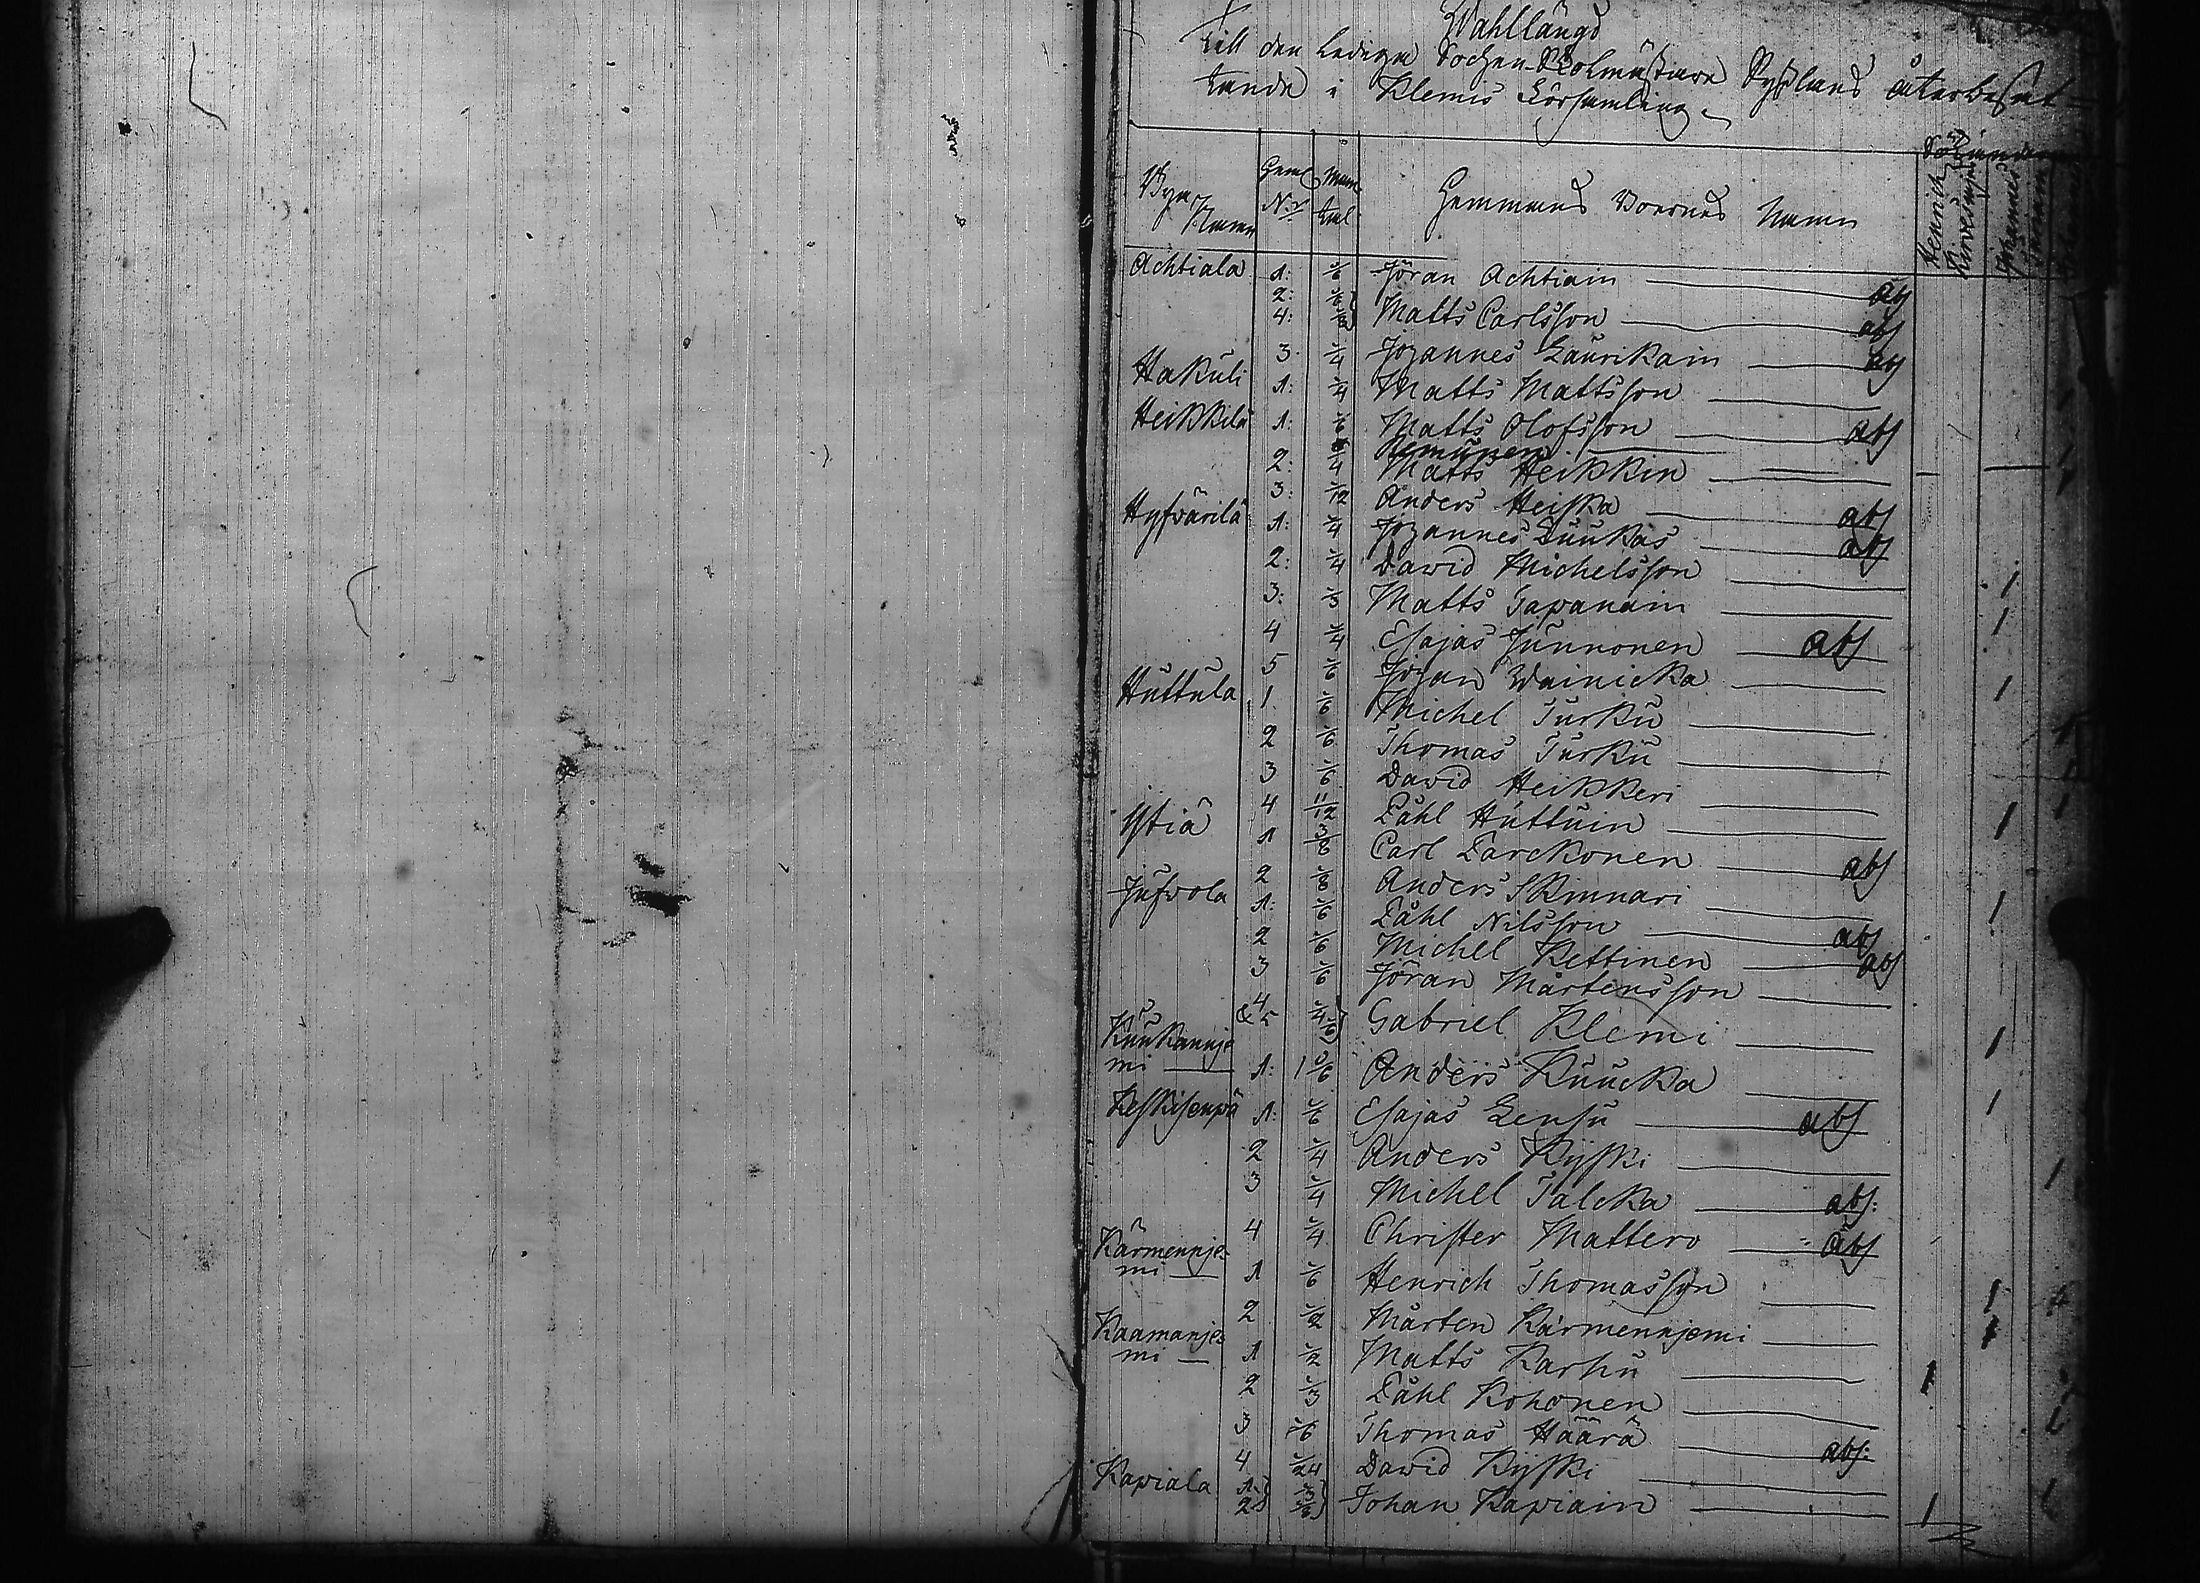 Wahllängd
Till den lediga Sochen-Skolmästare Sysslans återbesät-
tande i Klemis Församling
Byn Namn
Heml N:r
Mantal
Hemmans Boernes Namn
Sökander
Henrich Hirvelius
Johannes
Achtiala 1: 1/6 Jöran Achtiain abs
2: 1/6
4: 1/8 Matts Carlsson abs
3. 1/4 Johannes Laurikain abs
Hakuli 1: 1/4 Matts Mattsson 1
Heikkilä 1: 1/6 Matts Olofsson abs
Remusen
2: 1/4 Matts Heikkin
3: 1/12 Anders Heiska abs
Hyfvärilä 1: 1/4 Johannes Luukas abs
2: 1/4 David Michelsson 1
3: 1/3 Matts Tapanain 1
4 1/4 Esajas Junnonen abs
5 1/6 Johan Wainicka 1
Huttula 1 1/6 Michel Turku 1
2 1/6 Thomas Turku
3 1/6 David Heikkeri 1
4 11/12 Påhl Huttuin 1
Ystiä 1 3/8 Carl Parckonen abs
2 1/8 Anders Skinnari 1
Jufvola 1: 1/6 Påhl Nilsson abs
2 1/6 Michel Kettinen abs
3 1/6 Jöran Mårtensson
4 & 5 1/4 1/6 Gabriel Klemi 1
Kuukannje
mi 1: 1 5/6 Anders Kuucka 1
Keskisenpä 1: 1/6 Esajas Lensu abs
2 1/4 Anders Kyski 1
3 1/4 Michel Talcka abs:
4 1/4 Christer Mattero abs
Kärmennje-
mi 1 1/6 Henrich Thomasson 1
2 1/2 Mårten Kärmennjemi 1
Kaamanje-
mi 1 1/2 Matts Karhu 1
2 1/3 Påhl Kohonen
3 1/6 Thomas Häärä abs:
4 1/24 David Kyski
Kapiala 1:
2 Johan Kapiain 1